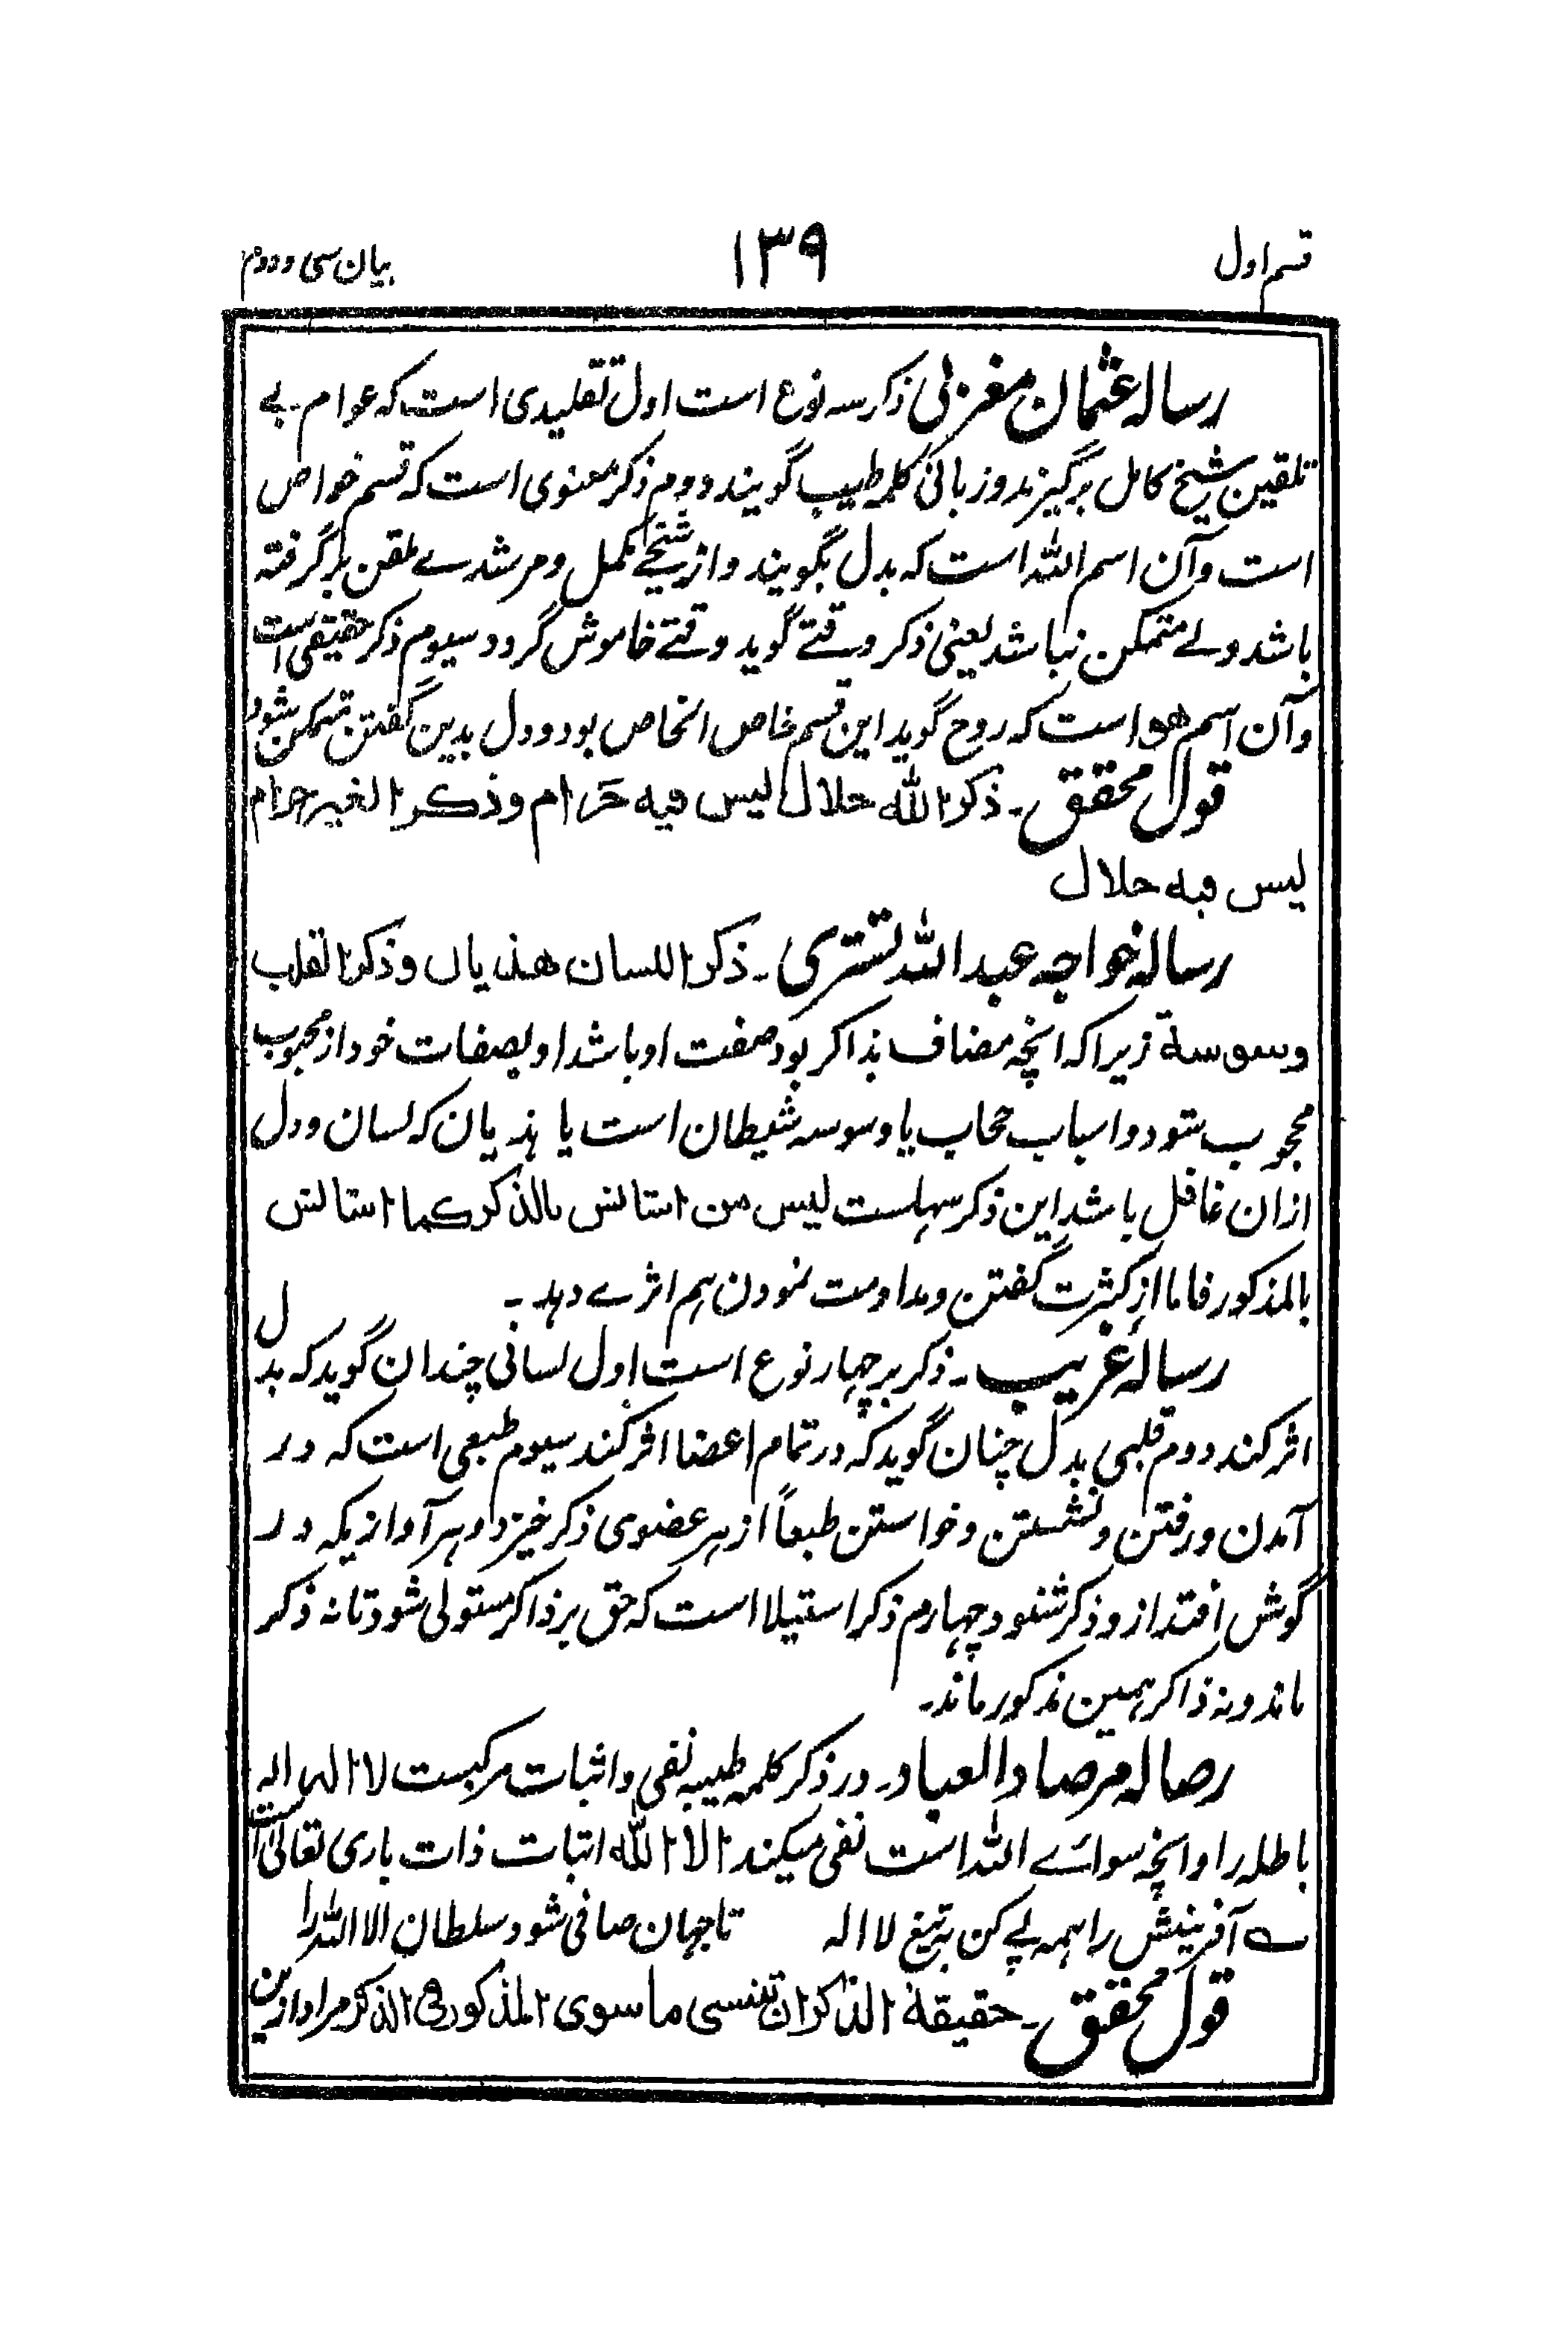 قسم اول
۱۳۹
بیان سی و دوم
رسالہ عثمان مغربی ذکر سہ نوع است اول تقلیدی است کہ عوام بے
تلقین شیخ کامل برگیزند و زبانی کلمہ طیب گویند دوم ذکر معنوی است کہ قسم خواص
است و آن اسم اللہ است کہ بدل بگویند و از شیخے مکمل و مرشدے ملقن برگرفتہ
باشد ولے متمکن نباشد یعنی ذکر وقتے گوید وقتے خاموش گردد سیوم ذکر حقیقی است
و آن اسم ھو است کہ روح گوید این قسم خاص الخاص بود و دل بدین گفتن متمکن شود
قول محقق ۔ ذکر الله حلال لیس فیه حَرَام و ذکر الغیر حرام
لیس فیه حلال
رسالہ خواجہ عبد اللہ تستری ۔ ذکر اللسان هذیان و ذکر القلب
وسوسة زیرا کہ انچہ مضاف بذاکر بود صفت او باشد او بصفات خود از محبوب
محجوب شود و اسباب حجاب یا وسوسہ شیطان است یا ہذیان کہ لسان و دل
ازان غافل باشد این ذکر سہلست لیس من استانس بالذکر کما استانس
بالمذکور فاما از کثرت گفتن و مداومت نمودن ہم اثرے دہد ۔
رسالہ غریب ۔ ذکر بر چہار نوع است اول لسانی چندان گوید کہ بدل
اثر کند دوم قلبی بدل چنان گوید کہ در تمام اعضا اثر کند سیوم طبعی است کہ در
آمدن و رفتن و نشستن و خواستن طبعاً از ہر عضوی ذکر خیزد و ہر آوازیکہ در
گوش افتد ازو ذکر شنود چہارم ذکر استیلا است کہ حق بر ذاکر مستولی شود تا نہ ذکر
ماند و نہ ذاکر ہمین مذکور ماند۔
رصالہ مرصاد العباد ۔ در ذکر کلمہ طیبہ نفی و اثبات مرکبست لا الہ الہ
باطلہ را و انچہ سوائے اللہ است نفی میکند الا الله اثبات ذات باری تعالی است
؎ آفرینش را ہمہ پے کن بہ تیغ لا الہ تا جہان صافی شود سلطان الا اللہ را
قول محقق ۔ حقیقة الذکر ان تنسی ما سوی المذکور فی الذکر مراد ازین